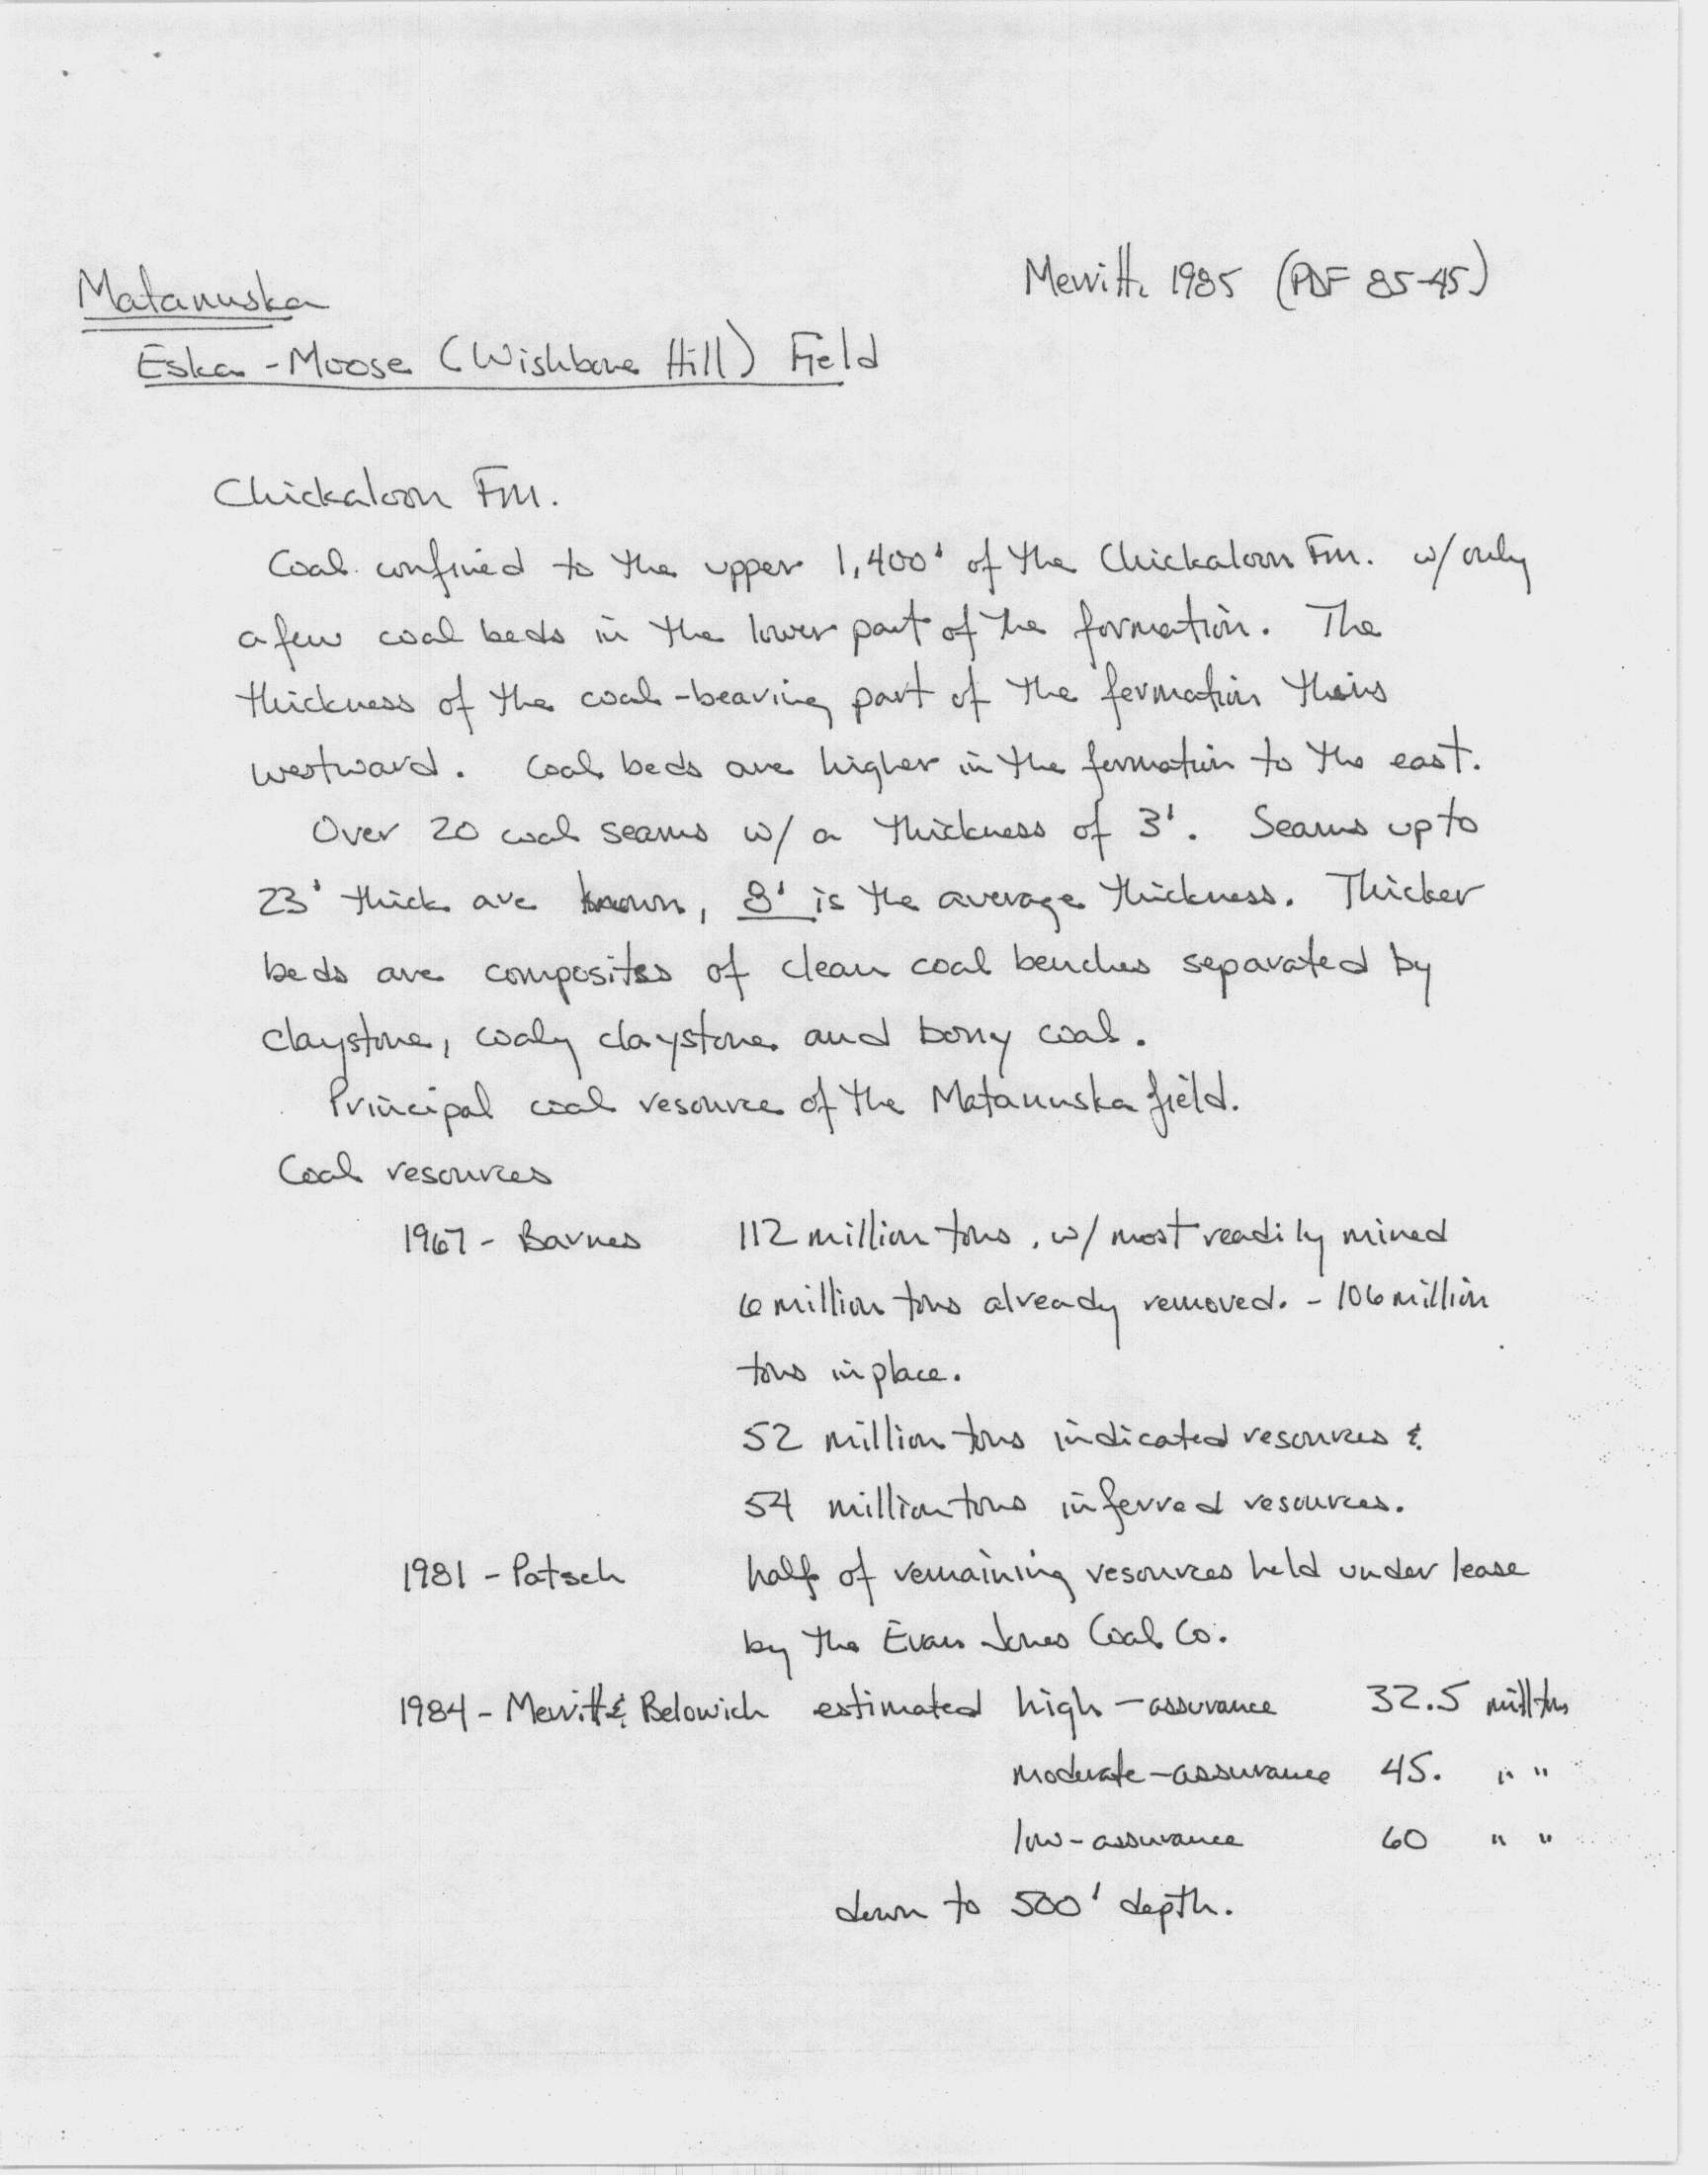 Matanuska
Merritt 1985 (PDF 85-45)
Eska-Moose (Wishbone Hill) Field
Chickaloon Fm.
Coal confined to the upper 1,400' of the Chickaloon Fm. w/ only
a few coal beds in the lower part of the formation. The
thickness of the coal-bearing part of the formation thins
westward. Coal beds are higher in the formation to the east.
Over 20 coal seams w/ a thickness of 3'. Seams up to
23' thick are known, 8' is the average thickness. Thicker
beds are composites of clean coal benches separated by
claystone, coaly claystone and bony coal.
Principal coal resource of the Matanuska field.
Coal resources
1967 - Barnes 112 million tons, w/ most readily mined
6 million tons already removed. - 106 million
tons in place.
52 million tons indicated resources &
54 million tons inferred resources.
1981 - Patsch half of remaining resources held under lease
by the Evan Jones Coal Co.
1984 - Merritt & Belowich estimated high-assurance 32.5 mill tns
moderate-assurance 45. " "
low-assurance 60 " "
down to 500' depth.